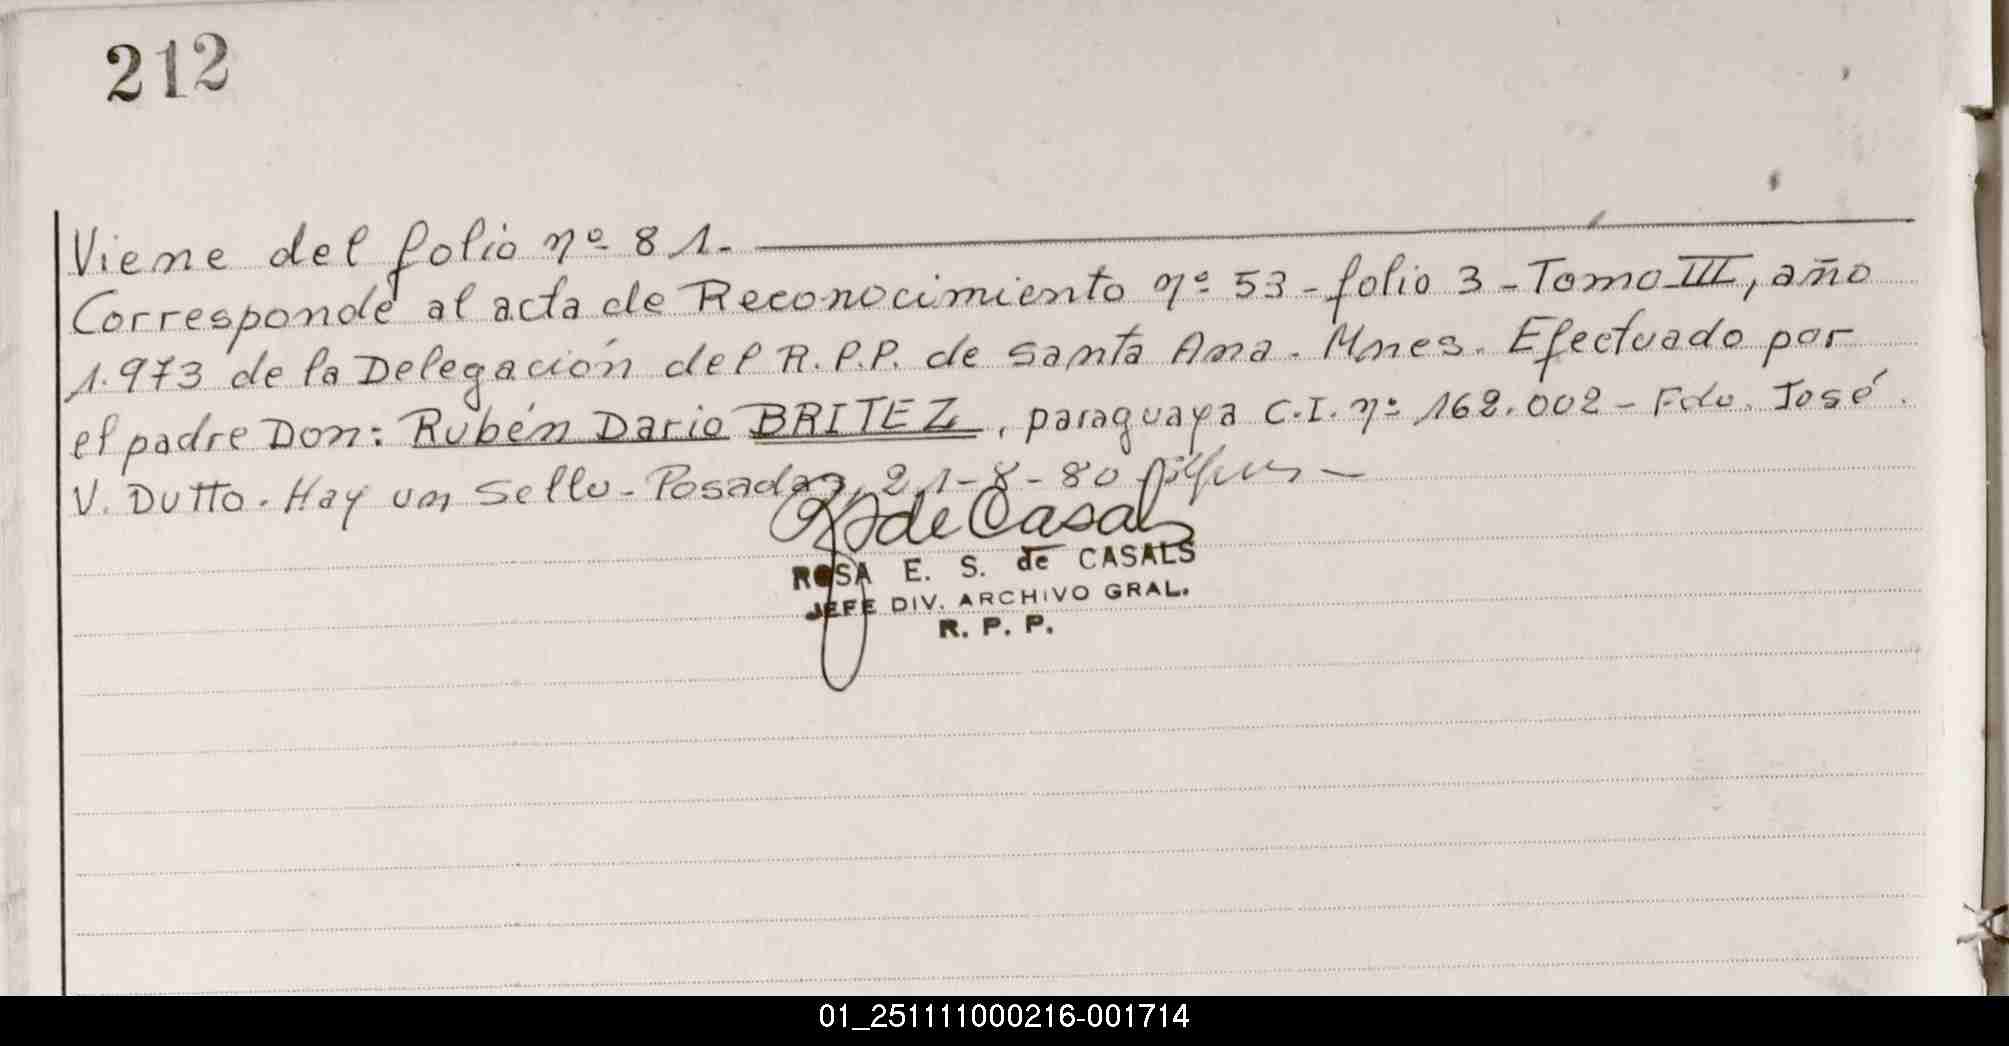 212
Viene del folio nº 81.-
Corresponde al acta de Reconocimiento nº 53 - folio 3 - Tomo III, año
1.973 de la Delegación del R.P.P. de Santa Ana. Mnes. Efectuado por
el padre Don: Rubén Dario BRITEZ, paraguaya C.I. nº 162.002 - Fdo. José
V. Dutto. Hay un sello - Posadas, 21-8-80
R de Casals
ROSA E. S. de CASALS
JEFE DIV. ARCHIVO GRAL.
R. P. P.
01_251111000216-001714